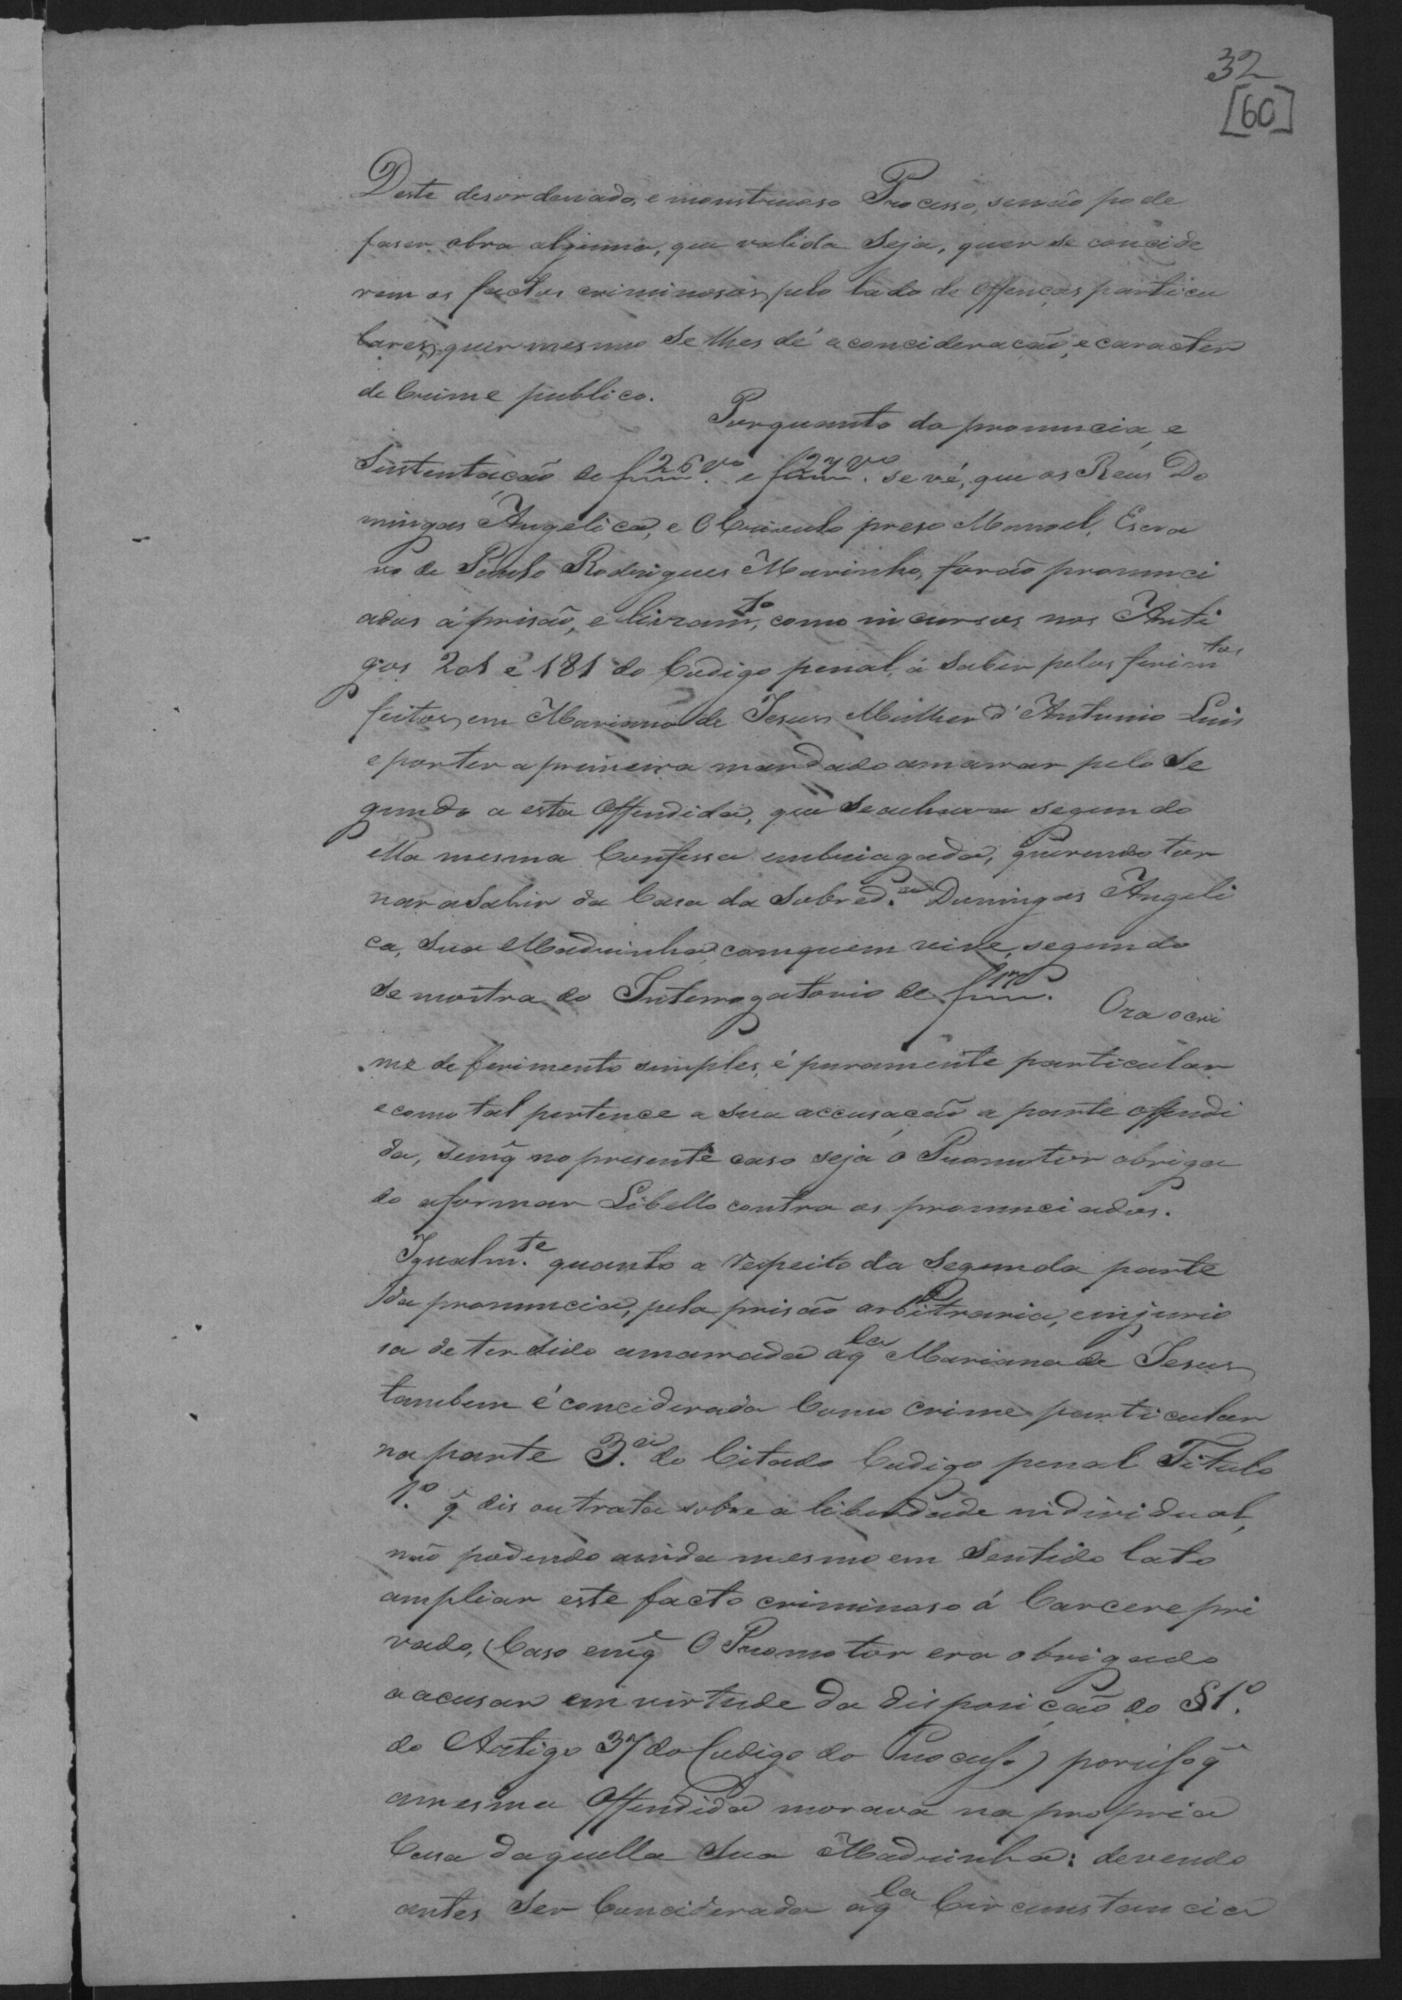 32
[60]
Deste desordenado, e monstruoso Processo, senão pode
faser obra alguma, que valida seja, quer se concide
rem os factos criminosos, pelo lado de offenças particu
lares, quer mesmo se lhes dé a concideração, e caracter
de Crime publico.
Porquanto da pronuncia, e
Sustentação de f 26 vº e f 27 vº se vé, que os Reus Do
mingas Angelica, e O Crioulo preso Manoel, Escra
vo de Paulo Rodrigues Marinho, forão pronunci
ados á prisão, e livramto, como incursos nos Arti
gos 201 e 181 do Codigo penal, á saber pelos ferimtos
feitos em Marianna de Jesus Mulher d'Antonio Luis
e por ter a primeira mandado amarrar pelo Se
gundo a esta Offendida, que se achava segundo
ella mesma Confessa embriagada, querendo tor
nar a sahir da Casa da sobred.ª Domingas Angeli
ca, sua Madrinha com quem vive, segundo
se mostra do Interrogatorio de f 17.
Ora o cri
me de ferimento simples, é puramente particular
e como tal pertence a sua accusação a parte offendi
da, semq̃ no presente caso seja o Promotor obriga
do a formar Libello contra os pronunciados.
Igualm.te quanto a respeito da Segunda parte
da pronuncia, pela prisão arbitraria, e injurio
sa de ter sido amarrada aqla Mariana de Jesus
tambem é conciderada Como crime particular
na parte 3.ª do Citado Codigo penal Titulo
1.º q̃ dis ou trata sobre a liberdade individual,
não podendo ainda mesmo em Sentido lato
ampliar este facto criminoso á Carcere pri
vado, (Caso emq̃ O Promotor era obrigado
a acusar em virtude da disposição do §1.º
do Artigo 37 do Codigo do Processo) por isso q̃
a mesma Offendida morava na propria
Casa daquella sua Madrinha: devendo
antes ser Conciderada aqla Circunstancia